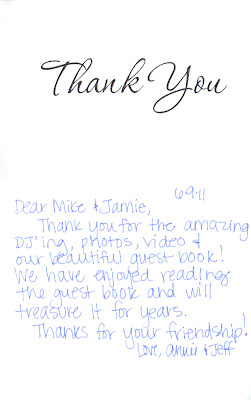 Thank You
6·9·11
Dear Mike & Jamie,
Thank you for the amazing
DJ'ing, photos, video &
our beautiful guest book!
We have enjoyed reading
the guest book and will
treasure it for years.
Thanks for your friendship!
Love, Annie & Jeff